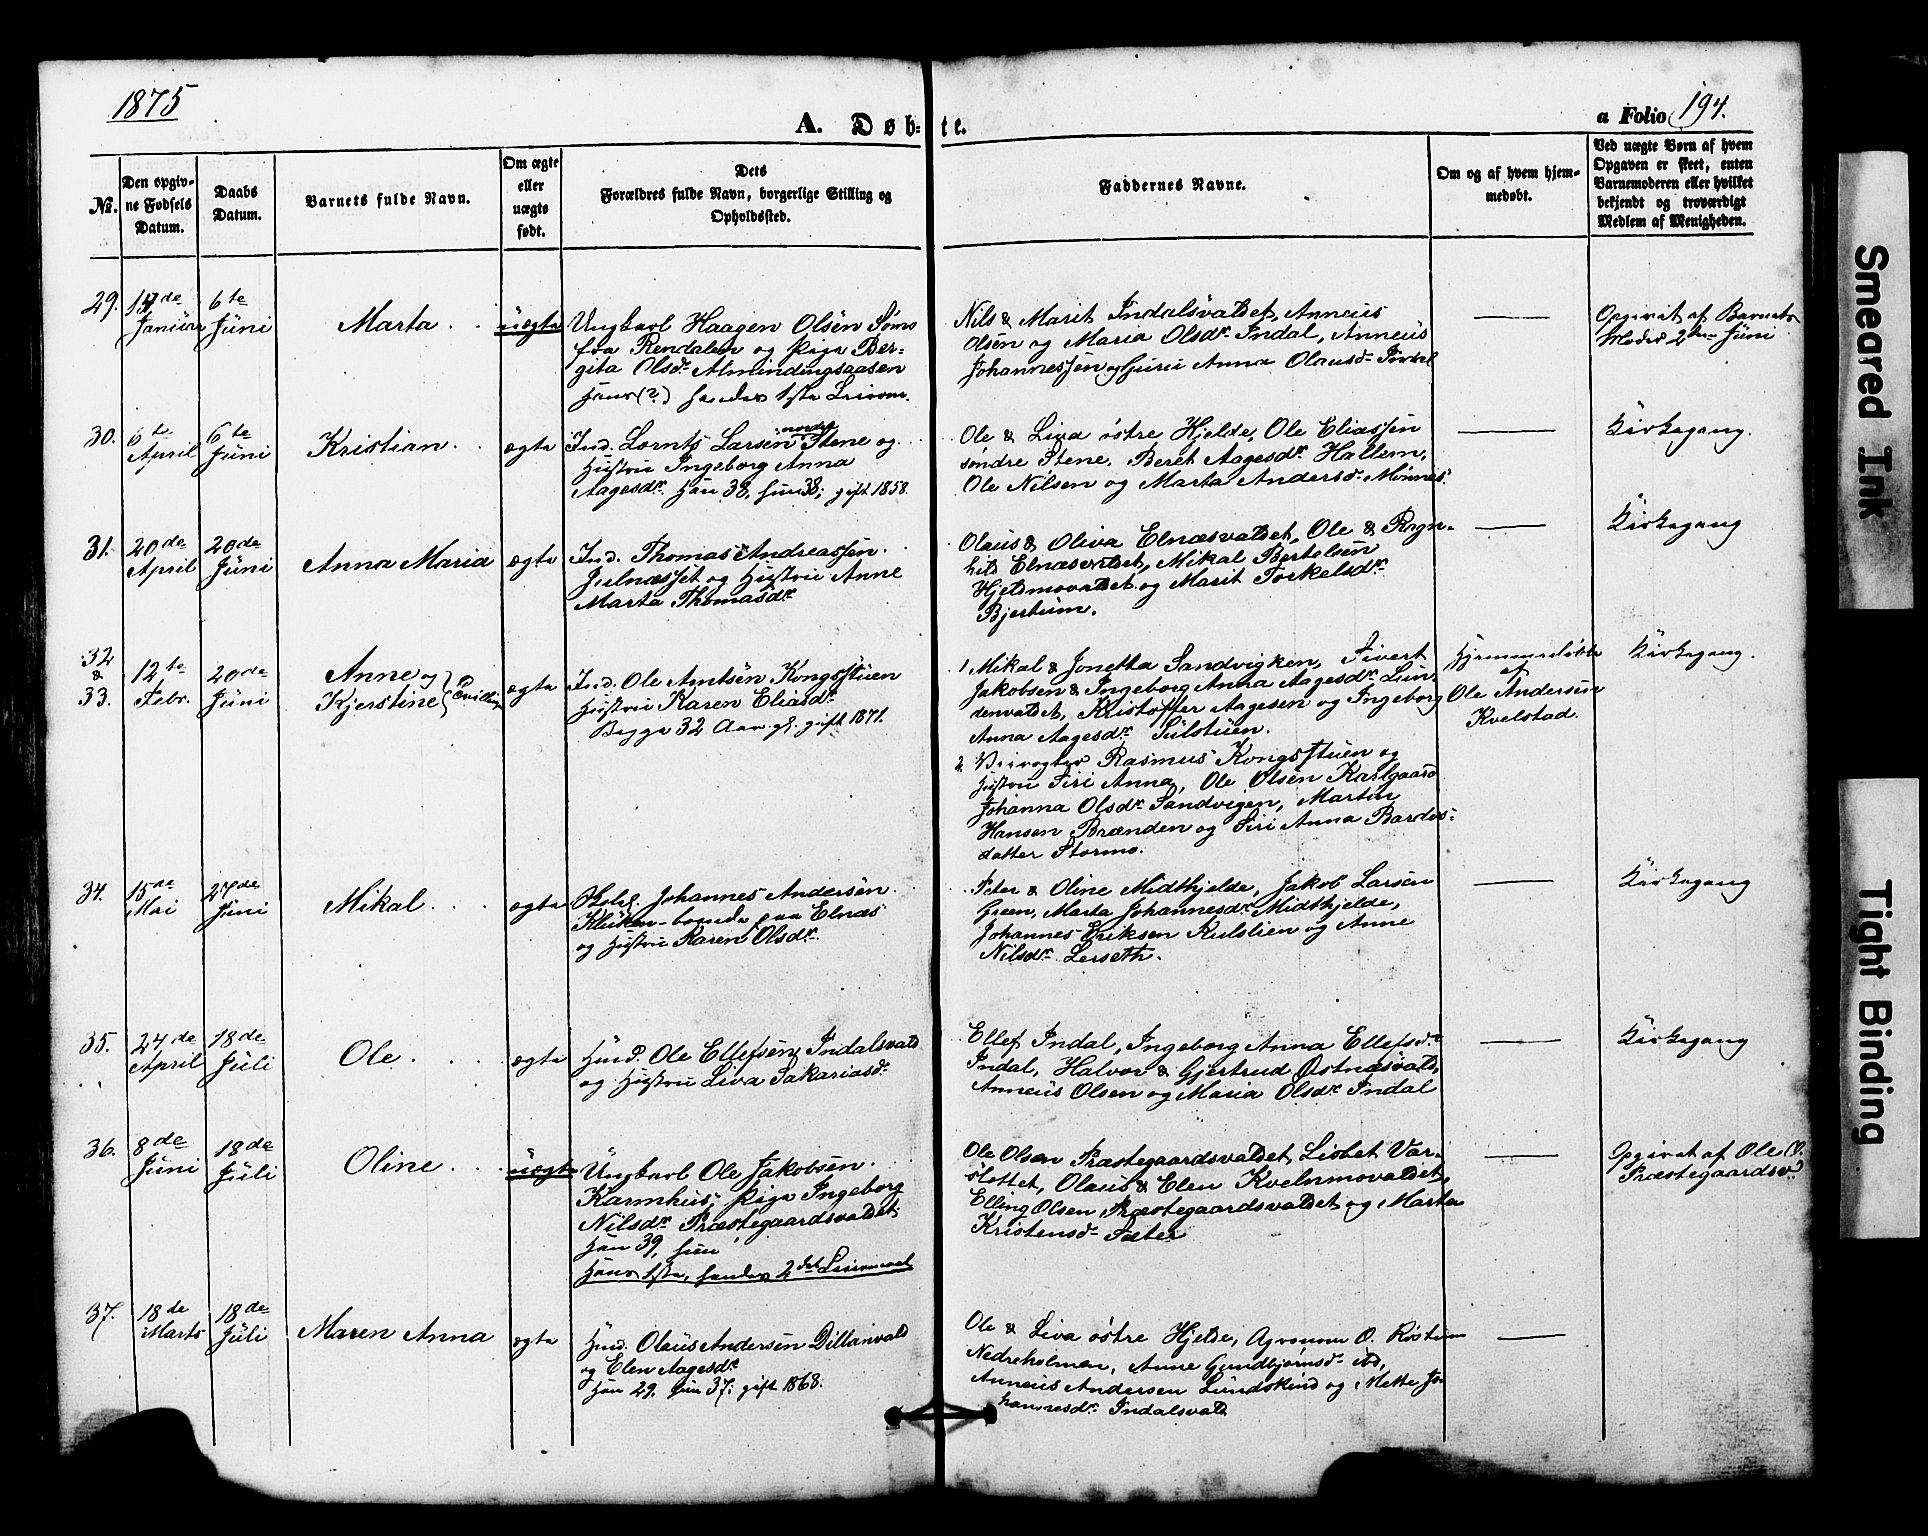 1875
A. Døbte.
a Folio 194.
No.
Den opgivne Fødsels Datum.
Daabs Datum.
Barnets fulde Navn.
Om ægte eller uægte født.
Dets Forældres fulde Navn, borgerlige Stilling og Opholdssted.
Faddernes Navne.
Om og af hvem hjemmedøbt.
Ved uægte Børn af hvem Opgaven er skeet, enten Barnemoderen eller hvilket bekjendt og troværdigt Medlem af Menigheden.
29.
Januar
6te Juni
Marta
uægte
Ungkarl Haagen Olsen
fra Rendalen og Pige Ber-
gita Olsdr Almindingsaasen
Hans (?) hendes 1ste Leierm.
Nils & Marit Indalsvaldet, Anneus
Olsen og Maria Olsdr Indal, Anneus
Johannessen og Guri Anna Olausd Indal
Opgivet af Barnets
Moder 2den Juni
30.
6te April
6te Juni
Kristian
ægte
Ind. Lornts Larsen nordre Stene og
Hustru Ingeborg Anna
Aagesdr. Han 38, hun 38; gift 1858.
Ole & Liva østre Hjelde, Ole Eliassen
søndre Stene, Beret Aagesdr Hallem,
Ole Nilsen og Marta Andersd Mønnes
Kirkegang.
31.
20de April
20de Juni
Anna Maria
ægte
Ind. Thomas Andreassen
Julnæsset og Hustru Anne
Marta Thomasdr
Olaus & Oliva Elnæsvaldet, Ole & Ragn-
hild Elnæsvaldet, Mikal Bertelsen
Hjeldmovaldet og Marit Torkelsdr
Bjertum.
Kirkegang
32 & 33.
12te Febr.
20de Juni
Anne og
Kjerstine
Tvillinger
ægte
Ind. Ole Arntsen Kongsstuen
Hustru Karen Eliasdr
Begge 32 Aar gl. gift 1871.
1, Mikal & Jonetta Sandvigken, Sivert
Jakobsen & Ingeborg Anna Aagesdr Lun-
denvaldet, Kristoffer Aagesen og Ingeborg
Anna Aagesdr Sulstuen.
2, Veivogter Rasmus Kongsstuen og
Hustru Siri Anna, Ole Olsen Karlgaard
Johanna Olsdr Sandvigen, Martin
Hansen Brænden og Siri Anna Bardos-
datter Stormo.
Hjemmedøbte
af
Ole Andersen
Kvelstad.
Kirkegang.
34.
15de Mai
27de Juni
Mikal
ægte
Skolel. Johannes Andersen
Kluken - boende paa Elnæs
og Hustru Karen Olsdr.
Peter & Oline Midthjelde, Jakob Larsen
Green, Marta Johannesdr Midthjelde,
Johannes Eriksen Kulslien og Anne
Nilsdr Lerseth.
Kirkegang
35.
24de April
18de Juli
Ole
ægte
Husd. Ole Ellefsen Indalsvald
og Hustru Liva Sakariasdr
Ellef Indal, Ingeborg Anna Ellefsdr
Indal, Halvor & Gjertrud Østnæsvald,
Anneus Olsen og Maria Olsdr Indal
Kirkegang
36.
8de Juni
18de Juli
Oline
uægte
Ungkarl Ole Jakobsen
Karmhus; Pige Ingeborg
Nilsdr Præstegaardsvaldet
Han 39, hun
Hans 1ste, hendes 2det Leiermaal
Ole Olsen Præstegaardsvaldet, Lisbet Var-
slottet, Olaus & Elen Kvelnmovaldet,
Elling Olsen Præstegaardsvaldet og Marta
Kristensd Sæter
Opgivet af Ole O.
Præstegaardsv.
37.
18de Marts
18de Juli
Maren Anna
ægte
Husd. Olaus Andersen Dillanvald
og Elen Aagesdr
Han 29, hun 37; gift 1868.
Ole & Liva østre Hjelde, Agronom O. Røstum
Nedreholmen, Anne Gundbjørnsd ibd,
Anneus Andersen Lundskind og Mette Jo-
hannesdr Indalsvald
Smeared Ink
Tight Binding